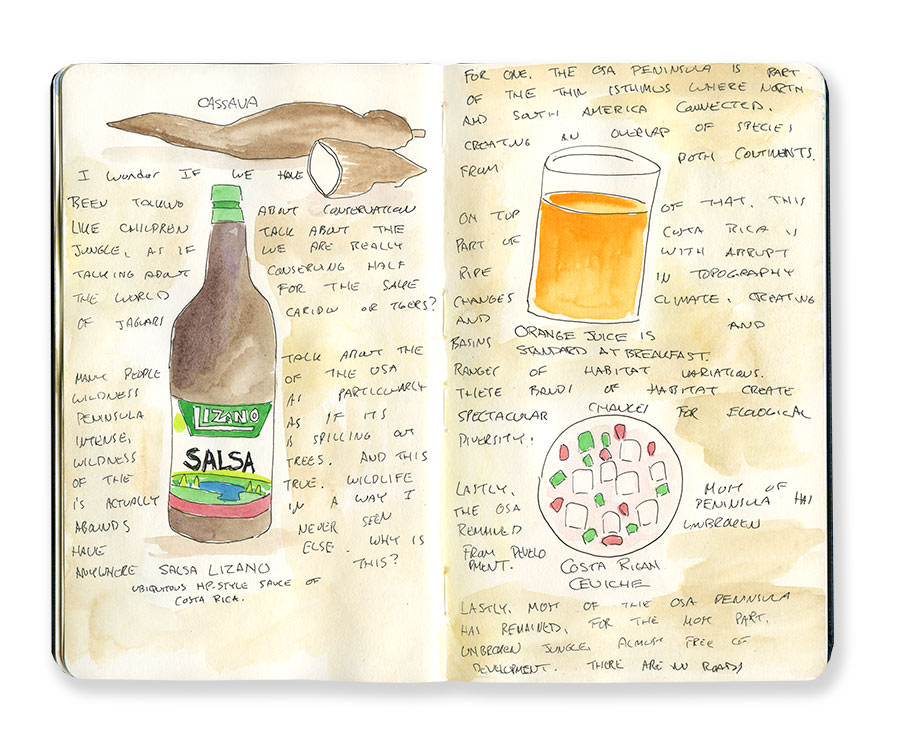 CASSAVA
I WONDER IF WE HAVE
BEEN TALKING ABOUT CONSERVATION
LIKE CHILDREN TALK ABOUT THE
JUNGLE, AS IF WE ARE REALLY
TALKING ABOUT CONSERVING HALF
THE WORLD FOR THE SAKE
OF JAGUARS CARIBOU OR TIGERS?
MANY PEOPLE TALK ABOUT THE
WILDNESS OF THE OSA
PENINSULA AS PARTICULARLY
INTENSE, AS IF ITS
WILDNESS IS SPILLING OUT
OF THE TREES. AND THIS
IS ACTUALLY TRUE. WILDLIFE
ABOUNDS IN A WAY I
HAVE NEVER SEEN
ANYWHERE ELSE. WHY IS
THIS?
LIZANO
SALSA
SALSA LIZANO
UBIQUITOUS HP-STYLE SAUCE OF
COSTA RICA.
FOR ONE, THE OSA PENINSULA IS PART
OF THE THIN ISTHMUS WHERE NORTH
AND SOUTH AMERICA CONNECTED,
CREATING AN OVERLAP OF SPECIES
FROM BOTH CONTINENTS.
ON TOP OF THAT, THIS
PART OF COSTA RICA IS
RIPE WITH ABRUPT
CHANGES IN TOPOGRAPHY
AND CLIMATE, CREATING
BASINS AND
RANGES OF HABITAT VARIATIONS.
THESE BANDS OF HABITAT CREATE
SPECTACULAR CHANCES FOR ECOLOGICAL
DIVERSITY.
ORANGE JUICE IS
STANDARD AT BREAKFAST.
LASTLY, MOST OF
THE OSA PENINSULA HAS
REMAINED UNBROKEN
FROM DEVELO
PMENT.
COSTA RICAN
CEVICHE
LASTLY, MOST OF THE OSA PENINSULA
HAS REMAINED, FOR THE MOST PART,
UNBROKEN JUNGLE, ALMOST FREE OF
DEVELOPMENT. THERE ARE NO ROADS